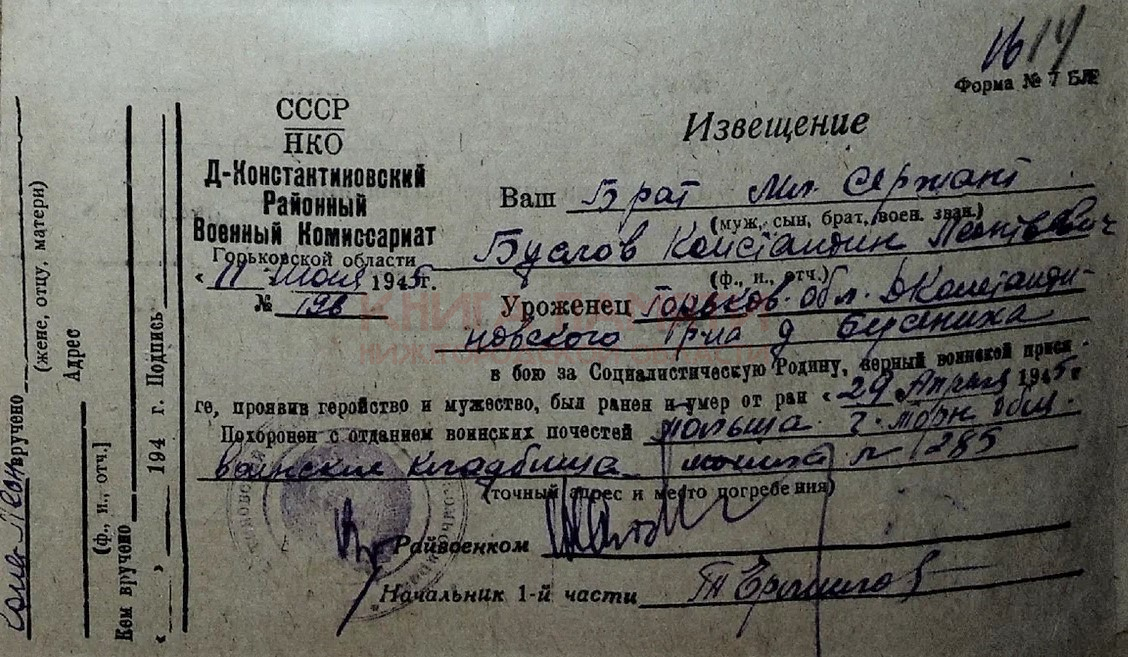 1614
Форма № 7 БЛР
СССР
НКО
Д-Константиновский
Районный
Военный Комиссариат
Горьковской области
« 11 » июня 1945г.
№ 196
Извещение
Ваш Брат Мл. Сержант
(муж, сын, брат, воен. зван.)
Буслов Константин
(ф., и., отч.)
Уроженец Горьков. обл. Д Константи-
новского р-на д
в бою за Социалистическую Родину, верный воинской прися-
ге, проявив геройство и мужество, был ранен и умер от ран « 29 Апреля 1945 г
Похоронен с отданием воинских почестей Польша г.
воинские кладбища могила № 285
(точный адрес и место погребения)
Райвоенком
Начальник 1-й части
вручено
(жене, отцу, матери)
Адрес
(ф., и., отч.)
Кем вручено
« » 194 г. Подпись
КНИГА